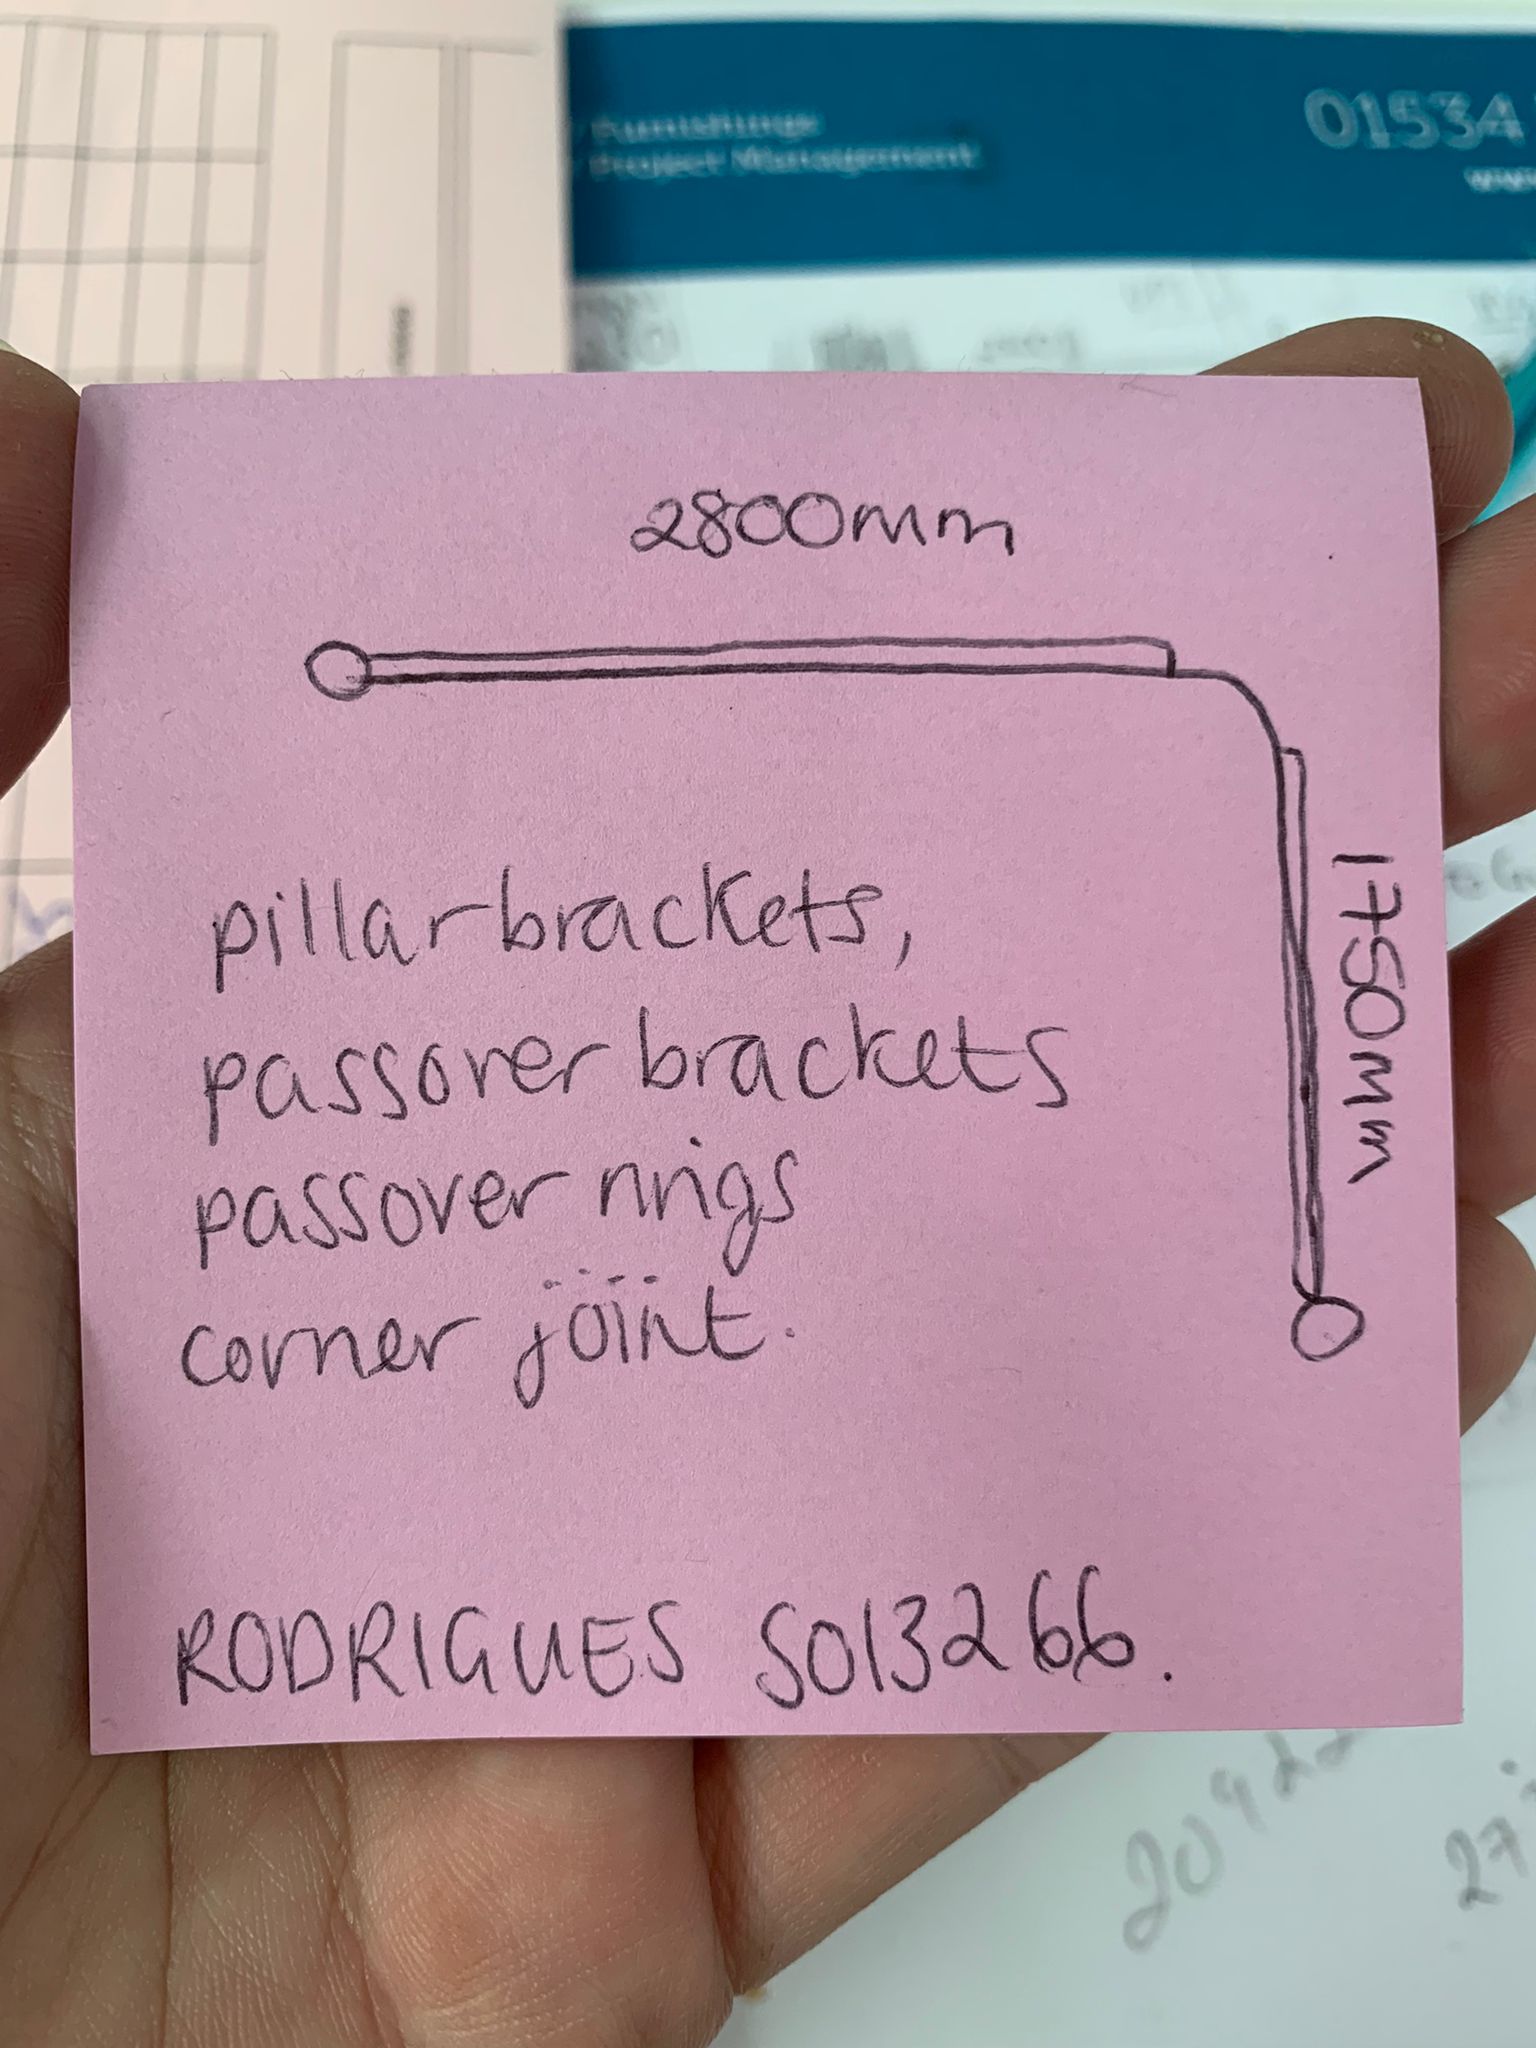 Furnishings
Project Management
01534
www
2800mm
1750mm
pillar brackets,
passover brackets
passover rings
corner joint.
RODRIGUES SO13266.